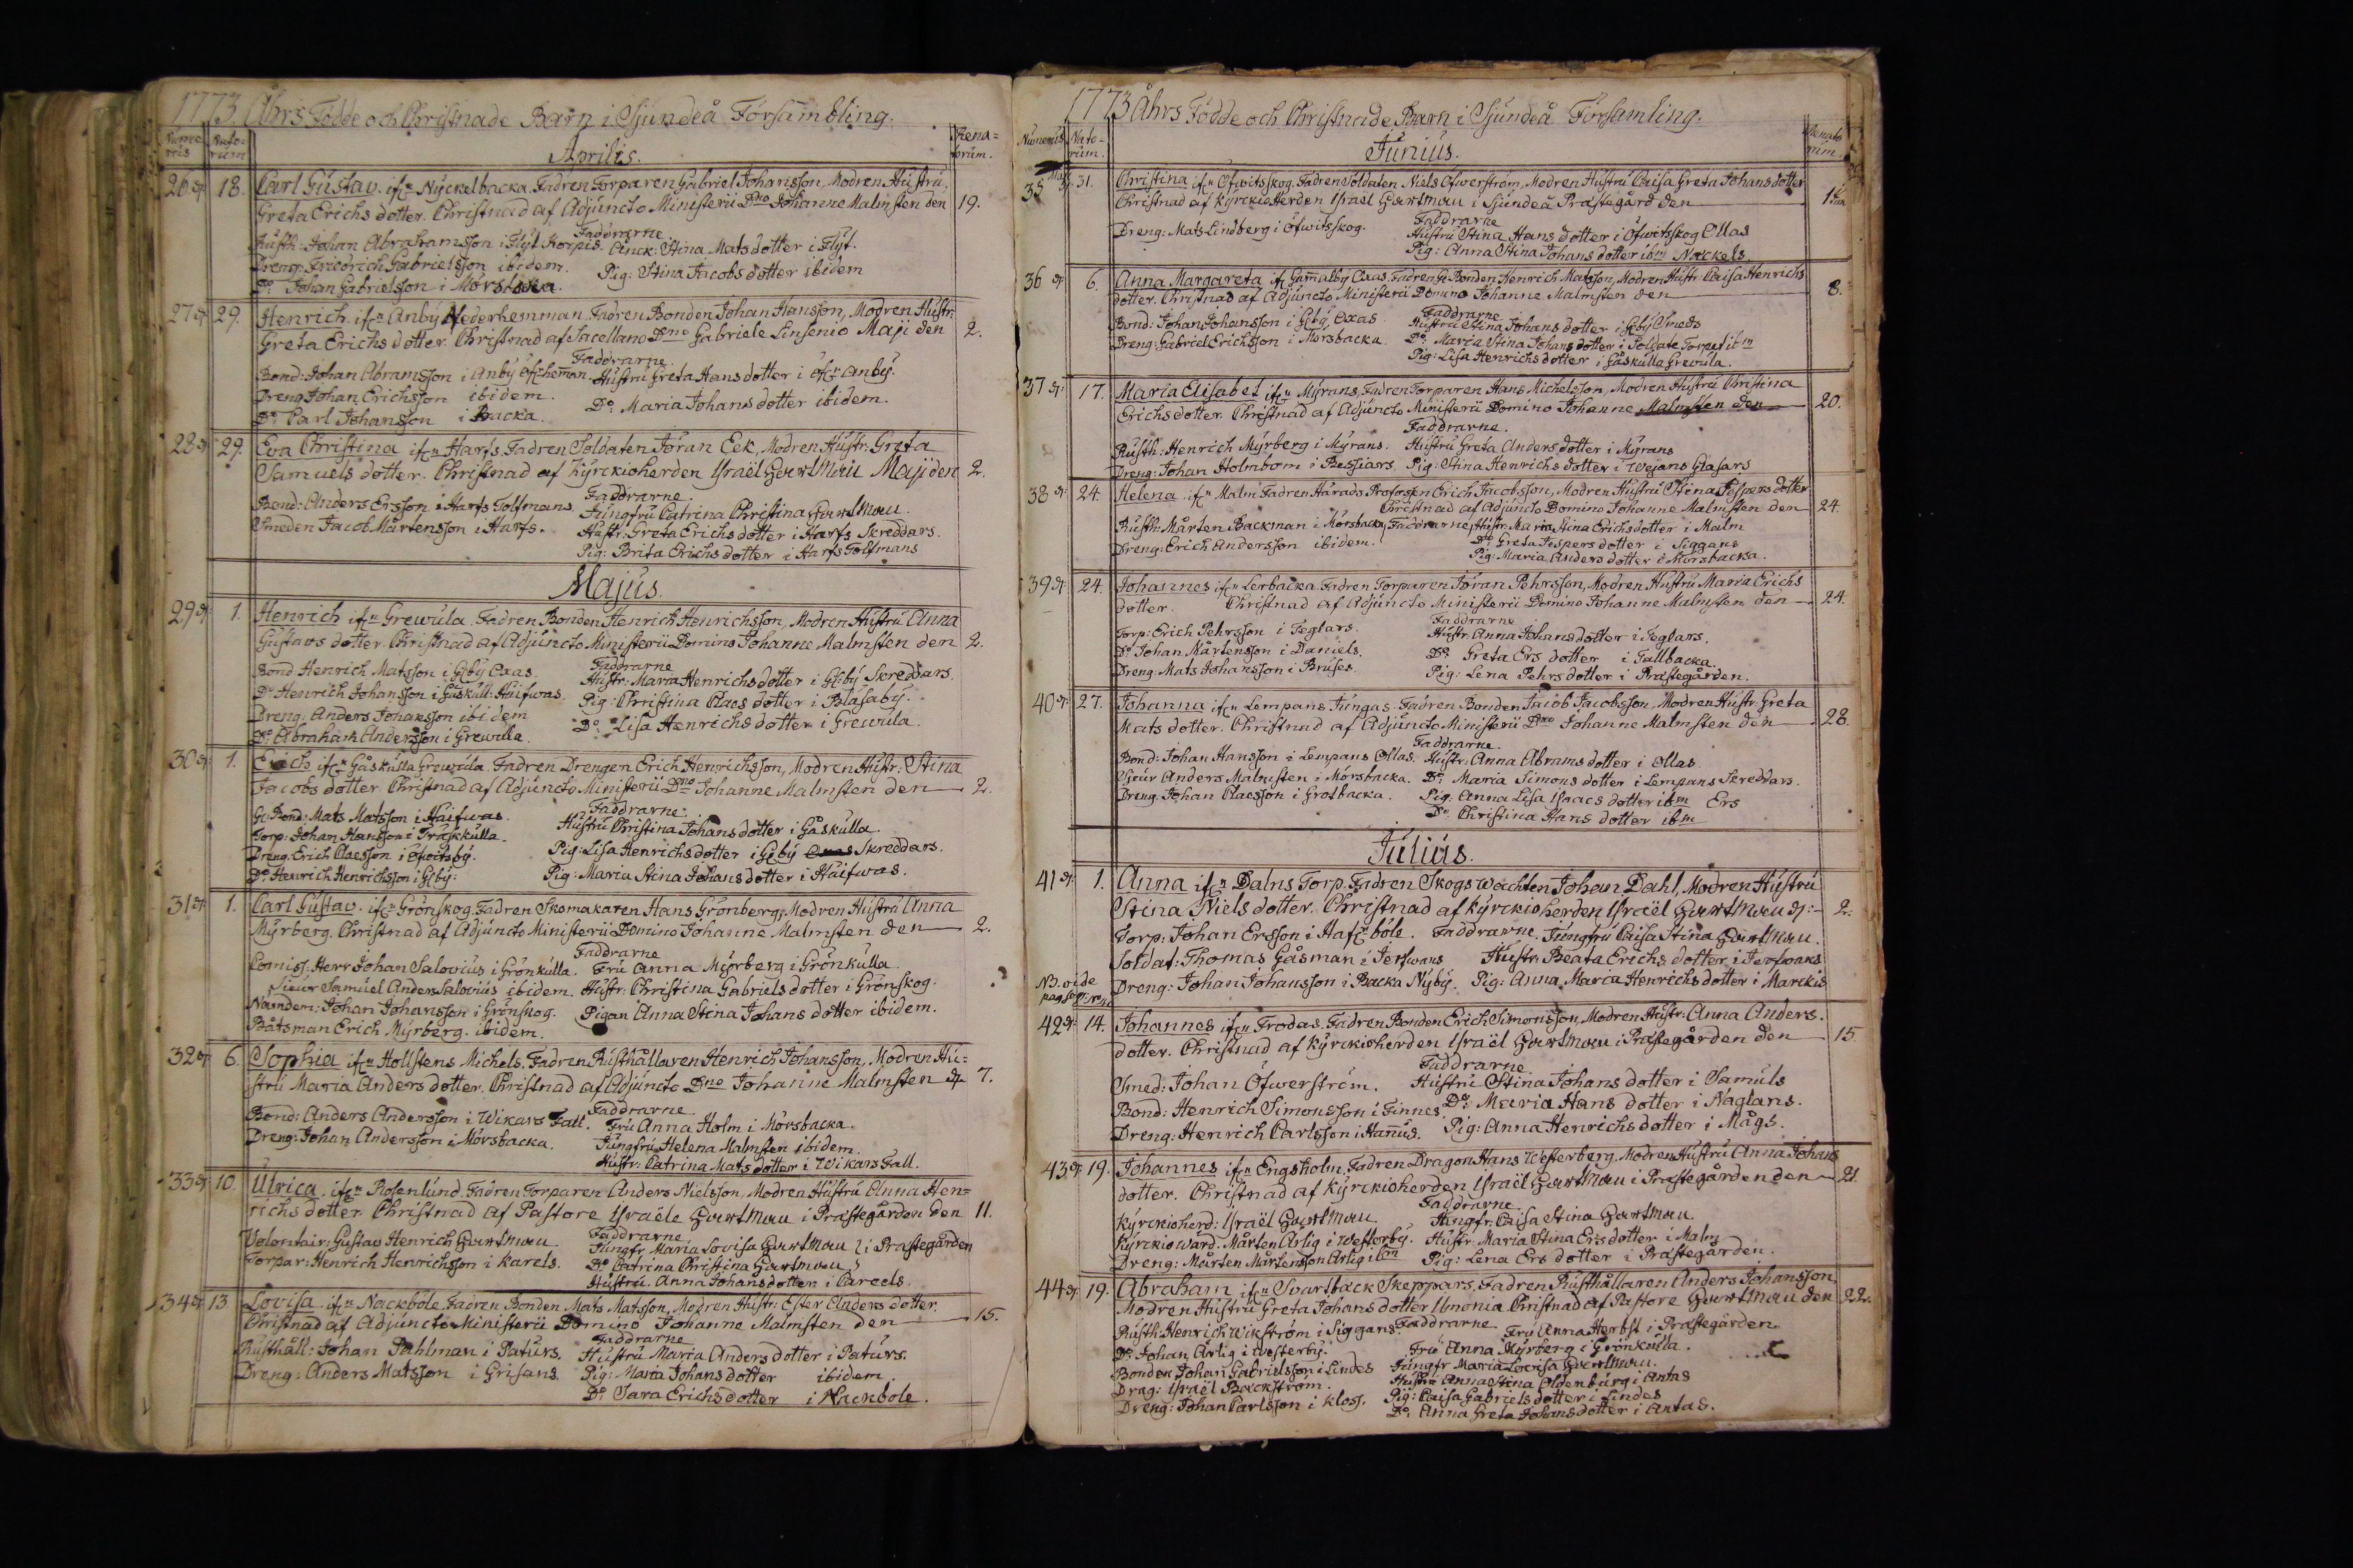 1773 Åhrs Födde och Christnade Barn i Sjundeå Försambling.
Nume rus Nato= rum Rena= torum.
Aprilis.
26 18. Carl Gustav. Nyckelbacka. Fadren Torparen Gabriel Johansson, Modren Hustru.
Greta Erichs dotter. Christnad af Adjuncto Ministerii Dno Johanne Malmsten den 19.
Faddrarne
Rusth: Johan Abrahamsson i Flyt Korpis. Enck: Stina Mats dotter i Flyt.
Dreng: Friedrich Gabrielsson ibidem. Pig: Stina Jacobs dotter ibidem
Do Johan Gabrielsson i Morsbacka.
27 29. Henrich Anby Nederhemman. Fadren Bonden Johan Hansson, Modren Hustr:
Greta Erichs dotter. Christnad af Sacellano Dno Gabriele Linsenio Maji den 2.
Faddrarne.
Bond: Johan Abramsson i Anby Hustru Greta Hans dotter i Anby.
Dreng Johan Erichsson ibidem. Do Maria Johans dotter ibidem.
Do Carl Johansson i Backa.
28 29. Eva Christina Harfs. Fadren Soldaten Jöran Eek, Modren Hustr: Greta
Samuels dotter. Christnad af Kyrckioherden Israël Hartman Maji den 2.
Faddrarne.
Bond: Anders Ersson i Harfs Tolfmans Jungfru Catrina Christina Hartman.
Smeden Jacob Mårtensson i Harfs. Hustr: Greta Erichs dotter i Harfs Skreddars.
Pig: Brita Erichs dotter i Harfs Tolfmans
Majus.
29 1. Henrich Grewula. Fadren Bonden Henrich Henrichsson, Modren Hustru Anna
Gustavs dotter. Christnad af Adjuncto Ministerii Domino Johanne Malmsten den 2.
Faddrarne
Bond Henrich Matsson i Gby Oxas Hustr: Maria Henrichs dotter i Gby Skreddars.
Do Henrich Johansson i Gåskull: Haifwas. Pig: Christina Claes dotter i Blåsaby.
Dreng: Anders Johansson ibidem Do Lisa Henrichs dotter i Grewula.
Do Abraham Andersson i Grewula.
30 1. Erich Gåskulla Grewula. Fadren Drengen Erich Henrichsson, Modren Hustr: Stina
Jacobs dotter. Christnad af Adjuncto Ministerii Dno Johanne Malmsten den 2.
Faddrarne.
Bond: Mats Matsson i Haifwas. Hustru Christina Johans dotter i Gåskulla.
Torp: Johan Hansson i Träskkulla.
Dreng: Erich Claesson i Pig: Lisa Henrichs dotter i Gby Skreddars.
Do Henrich Henrichsson i Gby: Pig: Maria Stina Johans dotter i Haifwas.
31 1. Carl Gustav. Grönskog. Fadren Skomakaren Hans Grönberg, Modren Hustru Anna
Myrberg. Christnad af Adjuncto Ministerii Domino Johanne Malmsten den 2.
Faddrarne
Comiss: Herr Johan Salovius i Grönkulla. Fru Anna Myrberg i Grönkulla
Sieur Samuel Anders Salovius ibidem. Hustr: Christina Gabriels dotter i Grönskog.
Namdem: Johan Johansson i Grönskog. Pigan Anna Stina Johans dotter ibidem.
Båtsman Erich Myrberg. ibidem.
32 6. Sophia Hollstens Michels. Fadren Rusthållaren Henrich Johansson, Modren Hu=
stru Maria Anders dotter. Christnad af Adjuncto Dno Johanne Malmsten 7.
Faddrarne
Bond: Anders Andersson i Wikars Fall. Fru Anna Holm i Morsbacka.
Dreng: Johan Andersson i Morsbacka. Jungfru Helena Malmsten ibidem.
Hustr: Catrina Mats dotter i Wikars Fall.
33 10. Ulrica. Rosenlund. Fadren Torparen Anders Nielsson, Modren Hustru Anna Hen=
richs dotter. Christnad af Pastore Israële Hartman i Prästegården den 11.
Faddrarne
Volontair: Gustav Henrich Hartman Jungfr Maria Lovisa Hartman i Prästegården
Torpar: Henrich Henrichsson i Karels. Do Catrina Christina Hartman
Hustru. Anna Johans dotter i Careels.
34 13 Lovisa Nackböle. Fadren Bonden Mats Matsson, Modren Hustr: Ester Anders dotter.
Christnad af Adjuncto Ministerii Domino Johanne Malmsten den 15.
Faddrarne
Rusthåll: Johan Pahlman i Paturs. Hustru Maria Anders dotter i Paturs.
Dreng: Anders Matsson i Grisans. Pig: Maria Johans dotter ibidem.
Do Sara Erichs dotter i Nackbole.
1773 Åhrs Födde och Christnade Barn i Sjundeå Församling.
Numerus Nato= rum. Renato rum.
Junius.
35 31. Christina Öfwitsskog. Fadren Soldaten Niels Öfwerström, Modren Hustru Caisa Greta Johans dotter
Christnad af Kyrckio Herden Israel Hartman i Sjundeå Prästegård den 1
Faddrarne
Dreng: Mats Lindberg i Öfwitsskog. Hustru Stina Hans dotter i Öfwitsskog Ollas
Pig: Anna Stina Johans dotter ibm Nackels.
36 6. Anna Margareta Gammalby Oxas. Fadren Bonden Henrich Matsson, Modren Hustr. Caisa Henrichs
dotter. Christnad af Adjuncto Ministerii Domino Johanne Malmsten den 8.
Faddrarne
Bond: Johan Johansson i Gby Oxas Hustru Stina Johans dotter i Gby Smeds
Dreng: Gabriel Erichsson i Morsbacka Do. Maria Stina Johans dotter i Soldate Torpet ibm
Pig: Lisa Henrichs dotter i Gåskulla Grewula.
37 17. Maria Elisabet Myrans, Fadren Torparen Hans Michelsson, Modren Hustru Christina
Erichs dotter. Christnad af Adjuncto Ministerii Domino Johanne Malmsten den 20.
Faddrarne.
Rusth: Henrich Myrberg i Myrans. Hustru Greta Anders dotter i Myrans
Dreng: Johan Holmbom i Bessiars. Pig: Stina Henrichs dotter i Wejans Glasars
38 24. Helena. Malm Fadren Härads Profossen Erich Jacobsson, Modren Hustru Stina Jespers dotter.
Christnad af Adjuncto Domino Johanne Malmsten den 24.
Rusth: Mårten Backman i Morsbacka Faddrarne Hustr: Maria Stina Erichs dotter i Malm
Dreng: Erich Andersson ibidem. Do Greta Jespers dotter i Siggans
Pig: Maria Anders dotter i Morsbacka.
39 24. Johannes Lerbacka. Fadren Torparen Jöran Pehrsson, Modren Hustru Maria Erichs
dotter. Christnad af Adjuncto Ministerii Domino Johanne Malmsten den 24.
Faddrarne
Torp: Erich Pehrsson i Teglars. Hustr. Anna Johans dotter i Teglars.
Do Johan Mårtensson i Daniels. Do Greta Ers dotter i Tallbacka.
Dreng Mats Johansson i Bruses. Pig: Lena Pehrs dotter i Prästegården.
40 27. Johanna Lempans Jungas. Fadren Bonden Jacob Jacobsson, Modren Hustr. Greta
Mats dotter. Christnad af Adjuncto Ministerii Dno Johanne Malmsten den 28.
Faddrarne.
Bond: Johan Hansson i Lempans Ollas. Hustr: Anna Abrams dotter i Ollas.
Sieur Anders Malmsten i Morsbacka. Do Maria Simons dotter i Lempans Skreddars.
Dreng. Johan Claesson i Grotbacka. Pig. Anna Lisa Isaacs dotter ibm Ers
Do Christina Hans dotter ibm
Julius.
41 1. Anna Dalns Torp. Fadren Skogs wachten Johan Dahl, Modren Hustru
Stina Niels dotter. Christnad af Kyrckioherden Israël Hartman 2.
Torp: Johan Ersson i böle. Faddrarne. Jungfru Caisa Stina Hartman.
Soldat: Thomas Gåsman i Jerfwans Hustr. Beata Erichs dotter i Jerfwans
Dreng: Johan Johansson i Backa Nyby. Pig: Anna Maria Henrichs dotter i Marckis
NB. vide
42 14. Johannes Frodas. Fadren Bonden Erich Simonsson, Modren Hustr: Anna Anders.
dotter. Christnad af Kyrckioherden Israël Hartman i Prästegården den 15.
Faddrarne.
Smed: Johan Öfwerström. Hustru Stina Johans dotter i Samuls
Bond: Henrich Simonsson i Finnes Do: Maria Hans dotter i Naglans.
Dreng: Henrich Carlsson i Hannus. Pig: Anna Henrichs dotter i Mågs.
43 19. Johannes Engsholm. Fadren Dragon Hans Westerberg. Modren Hustru Anna Johans
dotter. Christnad af Kyrckioherden Israël Hartman i Prästegården den 21.
Faddrarne.
Kyrckioherd: Israël Hartman Jungfr. Caisa Stina Hartman
Kyrckioward. Mårten Arlig i Westerby. Hustr. Maria Stina Ers dotter i Malm
Dreng: Mårten Mårtensson Arlig i Pig: Lena Ers dotter i Prästegården.
44 19. Abraham Svartback Skeppars. Fadren Rusthållaren Anders Johansson
Modren Hustru Greta Johans dotter Christnad af Pastore Hartman den 22.
Rusth: Henrich Wikström i Siggans. Faddrarne Fru Anna Herbst i Prästegården
Do Johan Arlig i Westerby. Fru Anna Myrberg i Grönkulla.
Bonden Johan Gabrielsson i Lindes Jungfr Maria Lovisa Hartman.
Drag: Israël Backström. Hustru Anna Stina Oldenburg i Antas
Dreng: Johan Carlsson i Kloss. Pig: Caisa Gabriels dotter i Lindes
Do. Anna Greta Johans dotter i Antas.